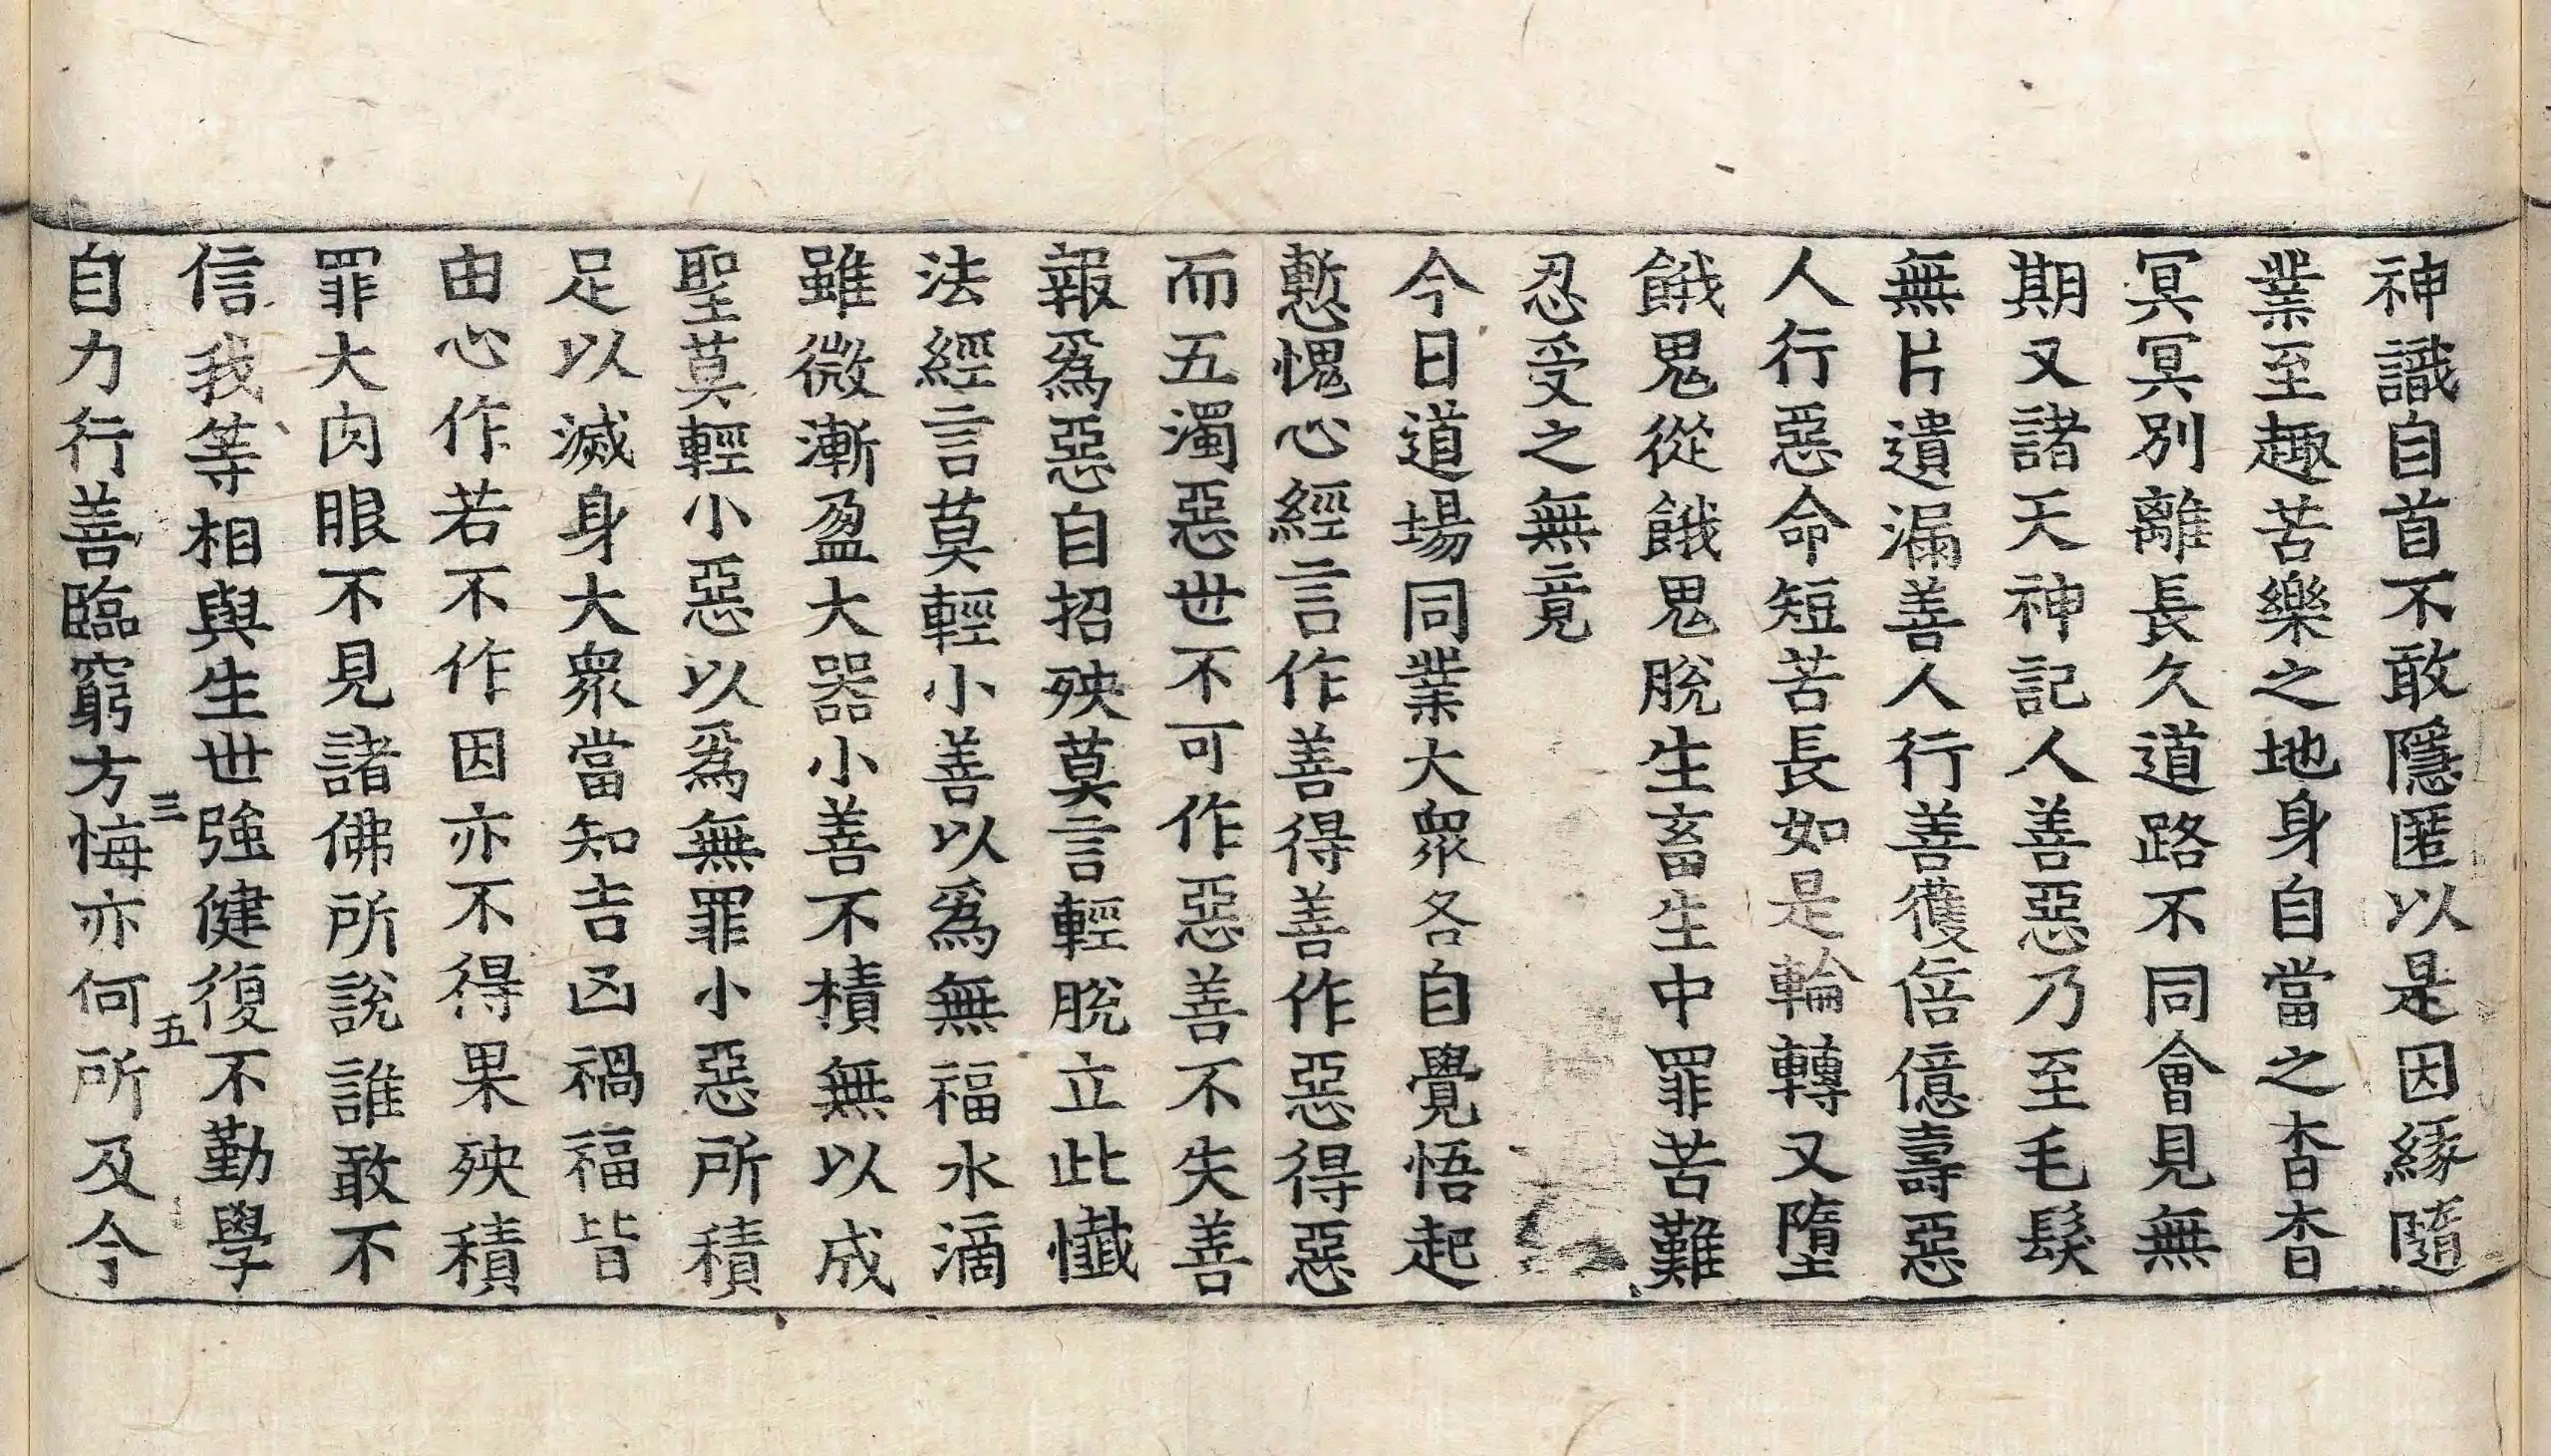 神識自首不敢隱匿以是因緣隨
業至趣苦樂之地身自當之杳杳
冥冥別離長久道路不同會見無
期又諸天神記人善惡乃至毛髮
無片遺漏善人行善獲倍億壽惡
人行惡命短苦長如是輪轉又墮
餓鬼從餓鬼脫生畜生中罪苦難
忍受之無竟
今日道場同業大眾各自覺悟起
慙愧心經言作善得善作惡得惡
而五濁惡世不可作惡善不失善
報爲惡自招殃莫言輕脫立此懺
法經言莫輕小善以爲無福水滴
雖微漸盈大器小善不積無以成
聖莫輕小惡以爲無罪小惡所積
足以滅身大眾當知吉凶禍福皆
由心作若不作因亦不得果殃積
罪大肉眼不見諸佛所說誰敢不
信我等相與生世強健復不勤學
三
五
自力行善臨窮方悔亦何所及今